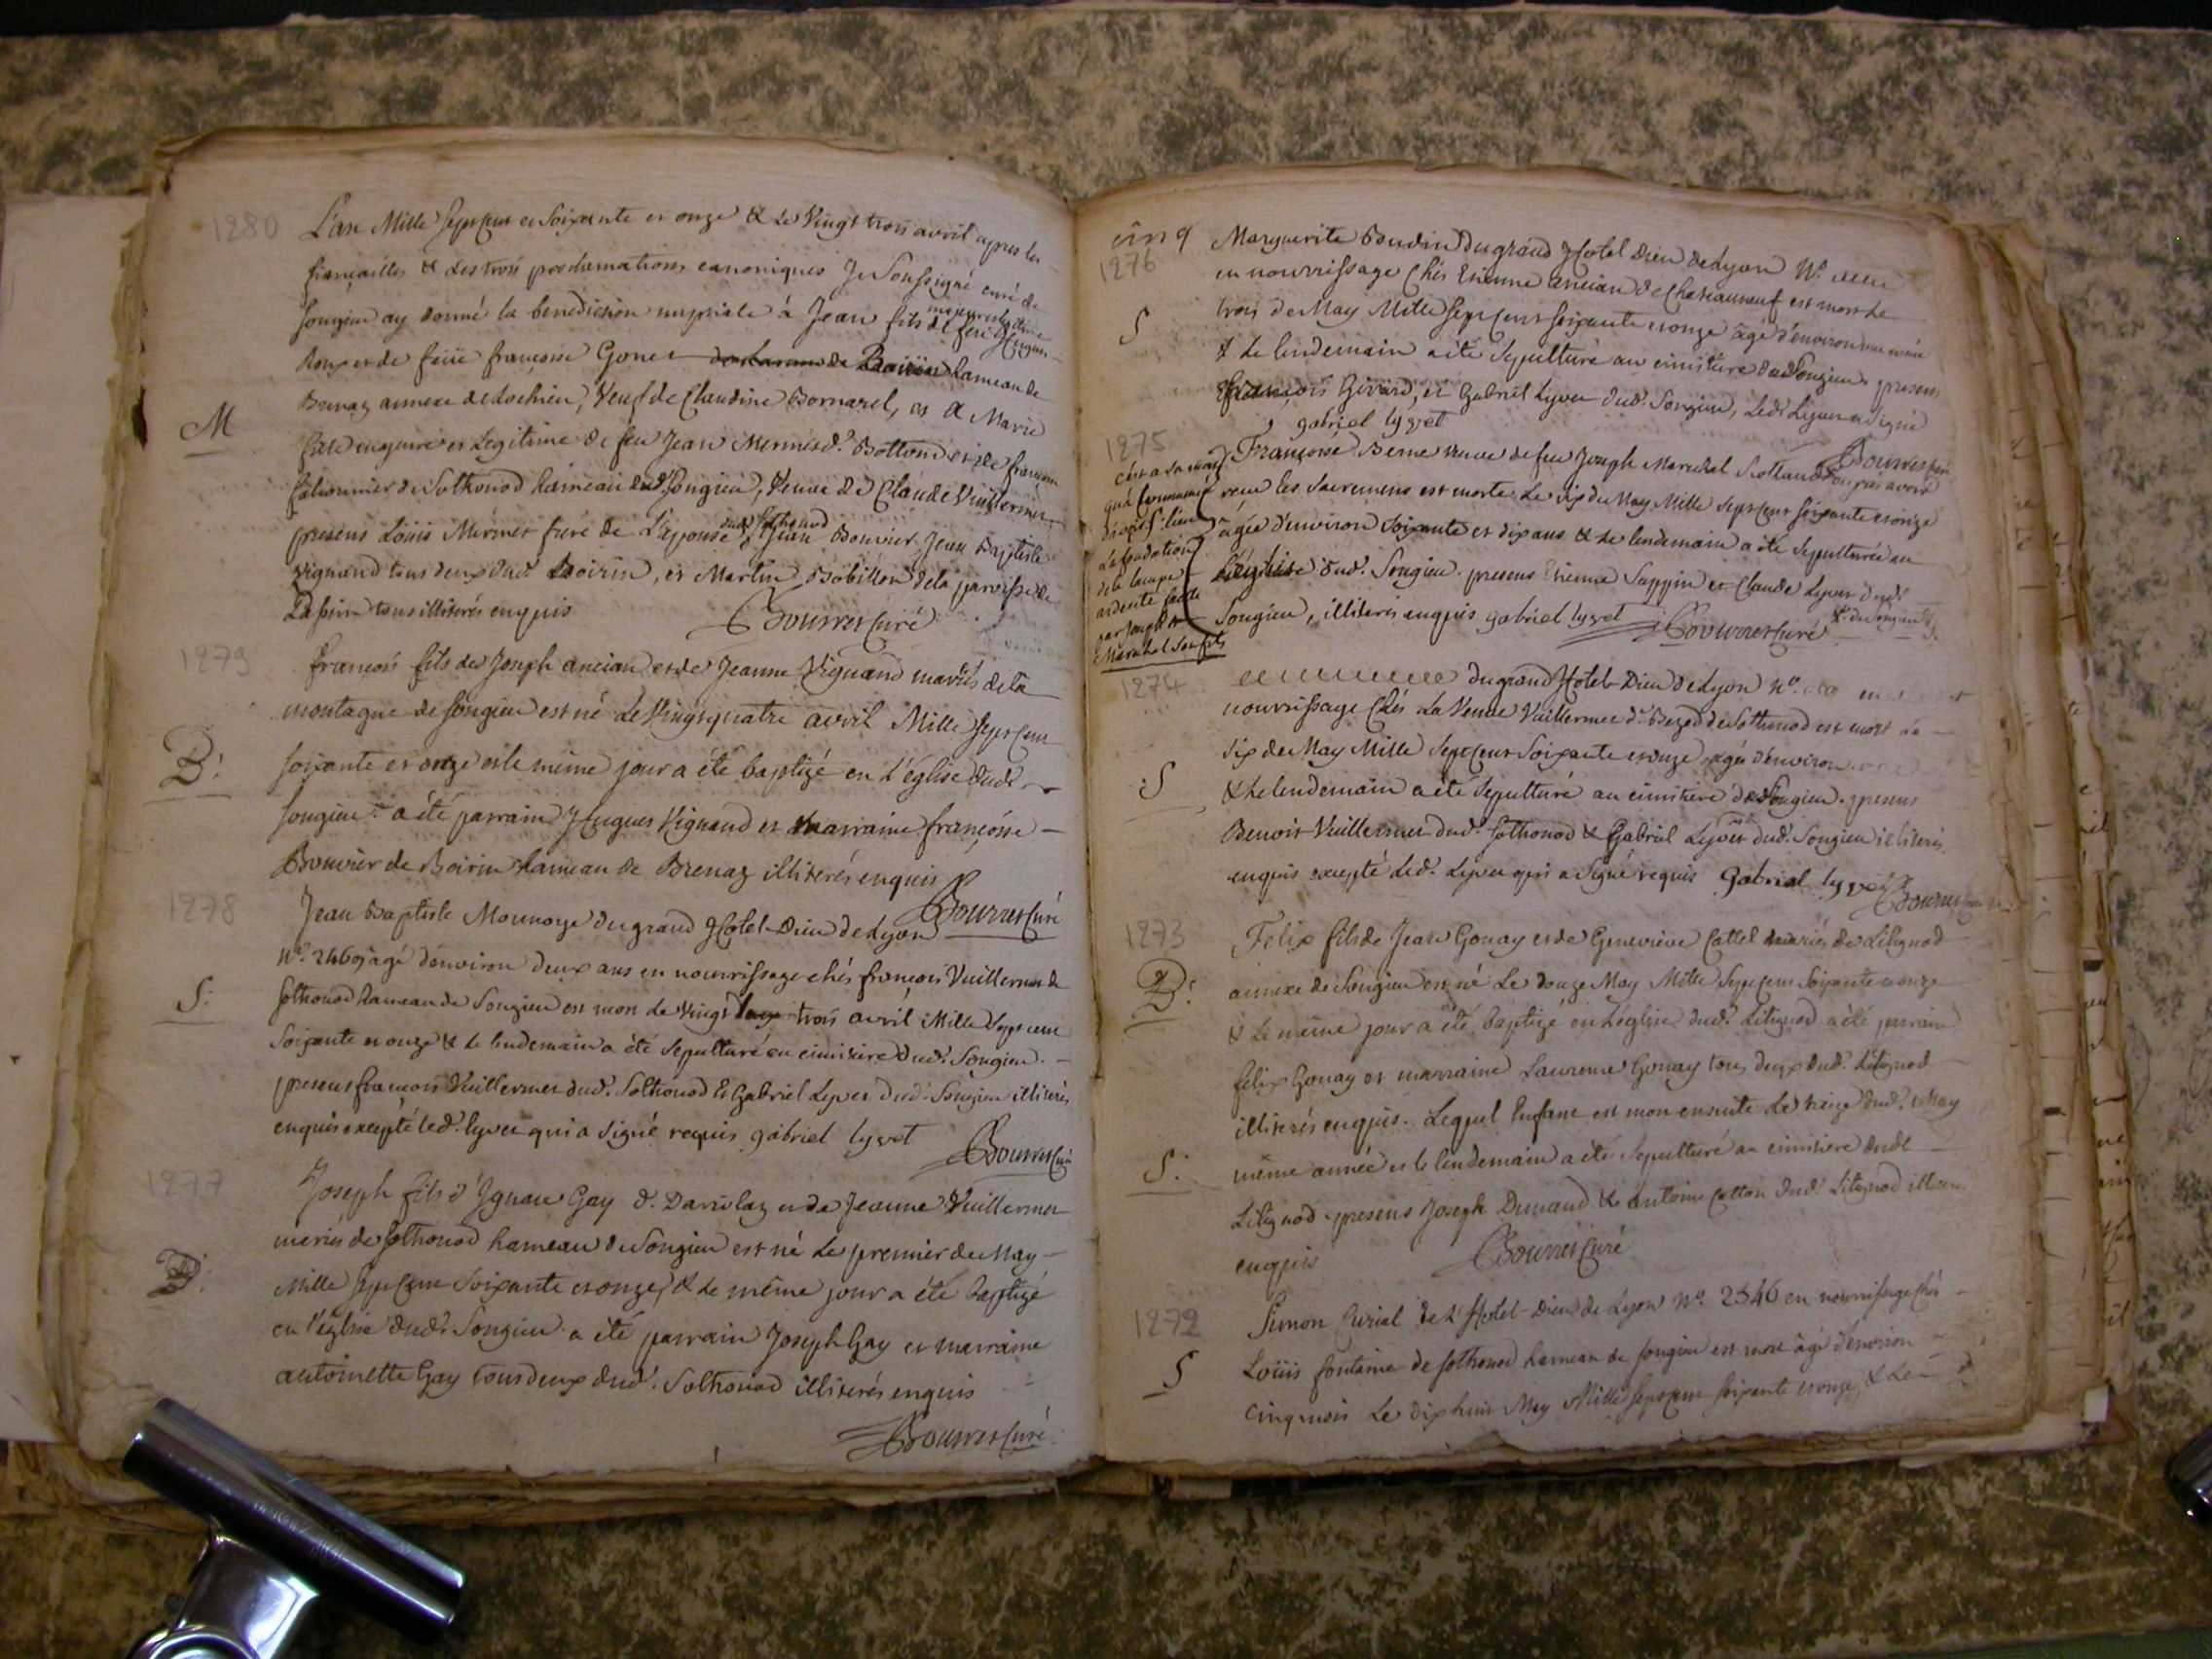 1280
L'an Mille Sept Cent et Soixante et onze & Le Vingt trois avril apres les
fiançailles & les trois proclamations canoniques Je Soussigné curé de
Songieu ay donné la benediction nuptiale à Jean fils majeur et legitime de feu Hugues
Roux et de feüe françoise Gonet hameau de
Brenaz annexe de Lochieu, Veuf de Claudine Bornarel, et a Marie
M
fille majeure et Legitime de feu Jean Mermet d. Bottond et de françoise
de Sothonod hameau dud. Songieu, Veuve de Claude Vuillermet
presens Loüis Mermet frere de L'épouse dud. Sothonod, Jean Bouvier Jean Baptiste
Vignand tous deux dud. Boirin, et Martin Bobillon de la paroisse de
tous illiterés enquis
Bourret Curé
1279
francois fils de Joseph ancian et de Jeanne Vignand mariés de la
montagne de Songieu est né Le Vingt quatre avril Mille Sept Cent
B:
soixante et onze et le même jour a été baptizé en L'église dud.
Songieu. a été parrain Hugues Vignand et marraine françoise
Bouvier de Boirin hameau de Brenaz illiterés enquis
Bourret Curé
1278
Jean Baptiste Mounoye du grand Hotel-Dieu de Lyon
N°. 2460 agé d'environ deux ans en nourrissage chés francois Vuillermet de
S:
Sothonod hameau de Songieu est mort le vingt trois avril Mille Sept cent
Soixante et onze & le lendemain a été Sepulturé au cimitiere dud. Songieu.
presens francois Vuillermet dud. Sothonod & Gabriel Lyvet dud. Songieu illiterés
enquis excepté led. lyvet qui a Signé requis gabriel lyvet
Bourret Curé
1277
Joseph fils d'Ignace Gay d. Dariolaz et de Jeanne Vuillermet
mariés de Sothonod hameau de Songieu est né Le premier de May
B.
Mille Sept Cent Soixante et onze, & le même jour a été baptizé
en l'église dud. Songieu a été parrain Joseph Gay et marraine
antoinette Gay tous deux dud. Sothonod illiterés enquis
Bourret Curé
cinq
1276
Marguerite Boudin du grand Hotel Dieu de Lyon N°.
en nourrissage Chés Etienne ancian de Chateauneuf est morte Le
S
trois de May Mille Sept Cent Soixante et onze âgé d'environ
& Le lendemain a été Sepulturé au cimitiere dud. Songieu presens
François Girard, et Gabriel Lyvet dud. Songieu, Led. Lyvet a Signé
gabriel lyvet
Bourret Curé
1275
c'est a sa mort
qua commencé
d'avoir lieu
La fondation
de la lampe
ardente faite
par Joseph
Marechal son fils
Françoise Berne veuve de feu Joseph Marechal apres avoir
reçu les Sacremens est morte Le six de May Mille Sept Cent Soixante et onze
agée d'environ Soixante et dix ans & le lendemain a été Sepulturée en
L'église dud. Songieu. presens Etienne Sappin et Claude Lyvet dud.
Songieu, illiterés enquis gabriel lyvet
Bourret Curé
1274
du grand Hotel-Dieu de Lyon N°. en
nourrissage Chés La Veuve Vuillermet d. de Sothonod est mort Le
six de May Mille Sept Cent Soixante et onze agé d'environ
S
& le lendemain a été Sepulturé au cimitiere de Songieu. presens
Benoit Vuillermet dud. Sothonod & Gabriel Lyvet dud. Songieu illiterés
enquis excepté Led. Lyvet qui a Signé requis Gabriel lyvet
Bourret
1273
Felix fils de Jean Gonay et de Geneviève Cattel mariés de Litignod
B:
annexe de Songieu est né Le douze May Mille Sept Cent Soixante et onze
& le même jour a été baptizé en L'église dud. Litignod a été parrain
felix Gonay et marraine Laurence Gonay tous deux dud. Litignod
illiterés enquis. Lequel Enfant est mort ensuite Le treize dud. May
S.
même année et le lendemain a été Sepulturé au cimitiere dud.
Litignod presens Joseph Dunand & antoine Cotton dud. Litignod
enquis
Bourret Curé
1272
Simon Curial de L'Hotel-Dieu de Lyon N°. 2546 en nourrissage Chés
S
Loüis fontaine de Sothonod hameau de Songieu est mort âgé d'environ
cinq mois Le dix huit May Mille Sept Cent Soixante et onze, & Le